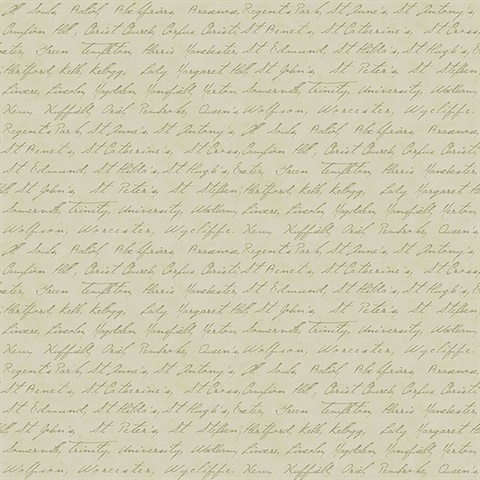 All Souls, Baliol, Blackfriars, Brasnose, Regent's Park, St Anne's, St Antony's,
Campion Hall, Christ Church, Corpus Christi, St Benet's, St Catherine's, St Cross,
Exeter, Green Templeton, Harris Manchester, St Edmund, St Hilda's, St Hugh's, Ex
Hertford, Keble, Kellogg, Lady Margaret Hall, St John's, St Peter's, St Stephen
Linacre, Lincoln, Magdalen, Mansfield, Merton, Somerville, Trinity, University, Wadham,
Nuffield, Oriel, Pembroke, Queen's, Wolfson, Worcester, Wycliffe.
Regent's Park, St Anne's, St Antony's, All Souls, Baliol, Blackfriars, Brasnose,
St Benet's, St Catherine's, St Cross, Campion Hall, Christ Church, Corpus Christi
St Edmund, St Hilda's, St Hugh's, Exeter, Green Templeton, Harris Manchester,
St John's, St Peter's, St Stephen, Hertford, Keble, Kellogg, Lady Margaret Ha
Somerville, Trinity, University, Wadham, Linacre, Lincoln, Magdalen, Mansfield, Merton
Wolfson, Worcester, Wycliffe. Nuffield, Oriel, Pembroke, Queen's
All Souls, Baliol, Blackfriars, Brasnose, Regent's Park, St Anne's, St Antony's,
Campion Hall, Christ Church, Corpus Christi, St Benet's, St Catherine's, St Cross
Exeter, Green Templeton, Harris Manchester, St Edmund, St Hilda's, St Hugh's, Ex
Hertford, Keble, Kellogg, Lady Margaret Hall, St John's, St Peter's, St Stephen
Linacre, Lincoln, Magdalen, Mansfield, Merton, Somerville, Trinity, University, Wadham,
Nuffield, Oriel, Pembroke, Queen's, Wolfson, Worcester, Wycliffe.
Regent's Park, St Anne's, St Antony's, All Souls, Baliol, Blackfriars, Brasnose,
St Benet's, St Catherine's, St Cross, Campion Hall, Christ Church, Corpus Christi
St Edmund, St Hilda's, St Hugh's, Exeter, Green Templeton, Harris Manchester,
St John's, St Peter's, St Stephen, Hertford, Keble, Kellogg, Lady Margaret Ha
Somerville, Trinity, University, Wadham, Linacre, Lincoln, Magdalen, Mansfield, Merton
Wolfson, Worcester, Wycliffe. Nuffield, Oriel, Pembroke, Queen's